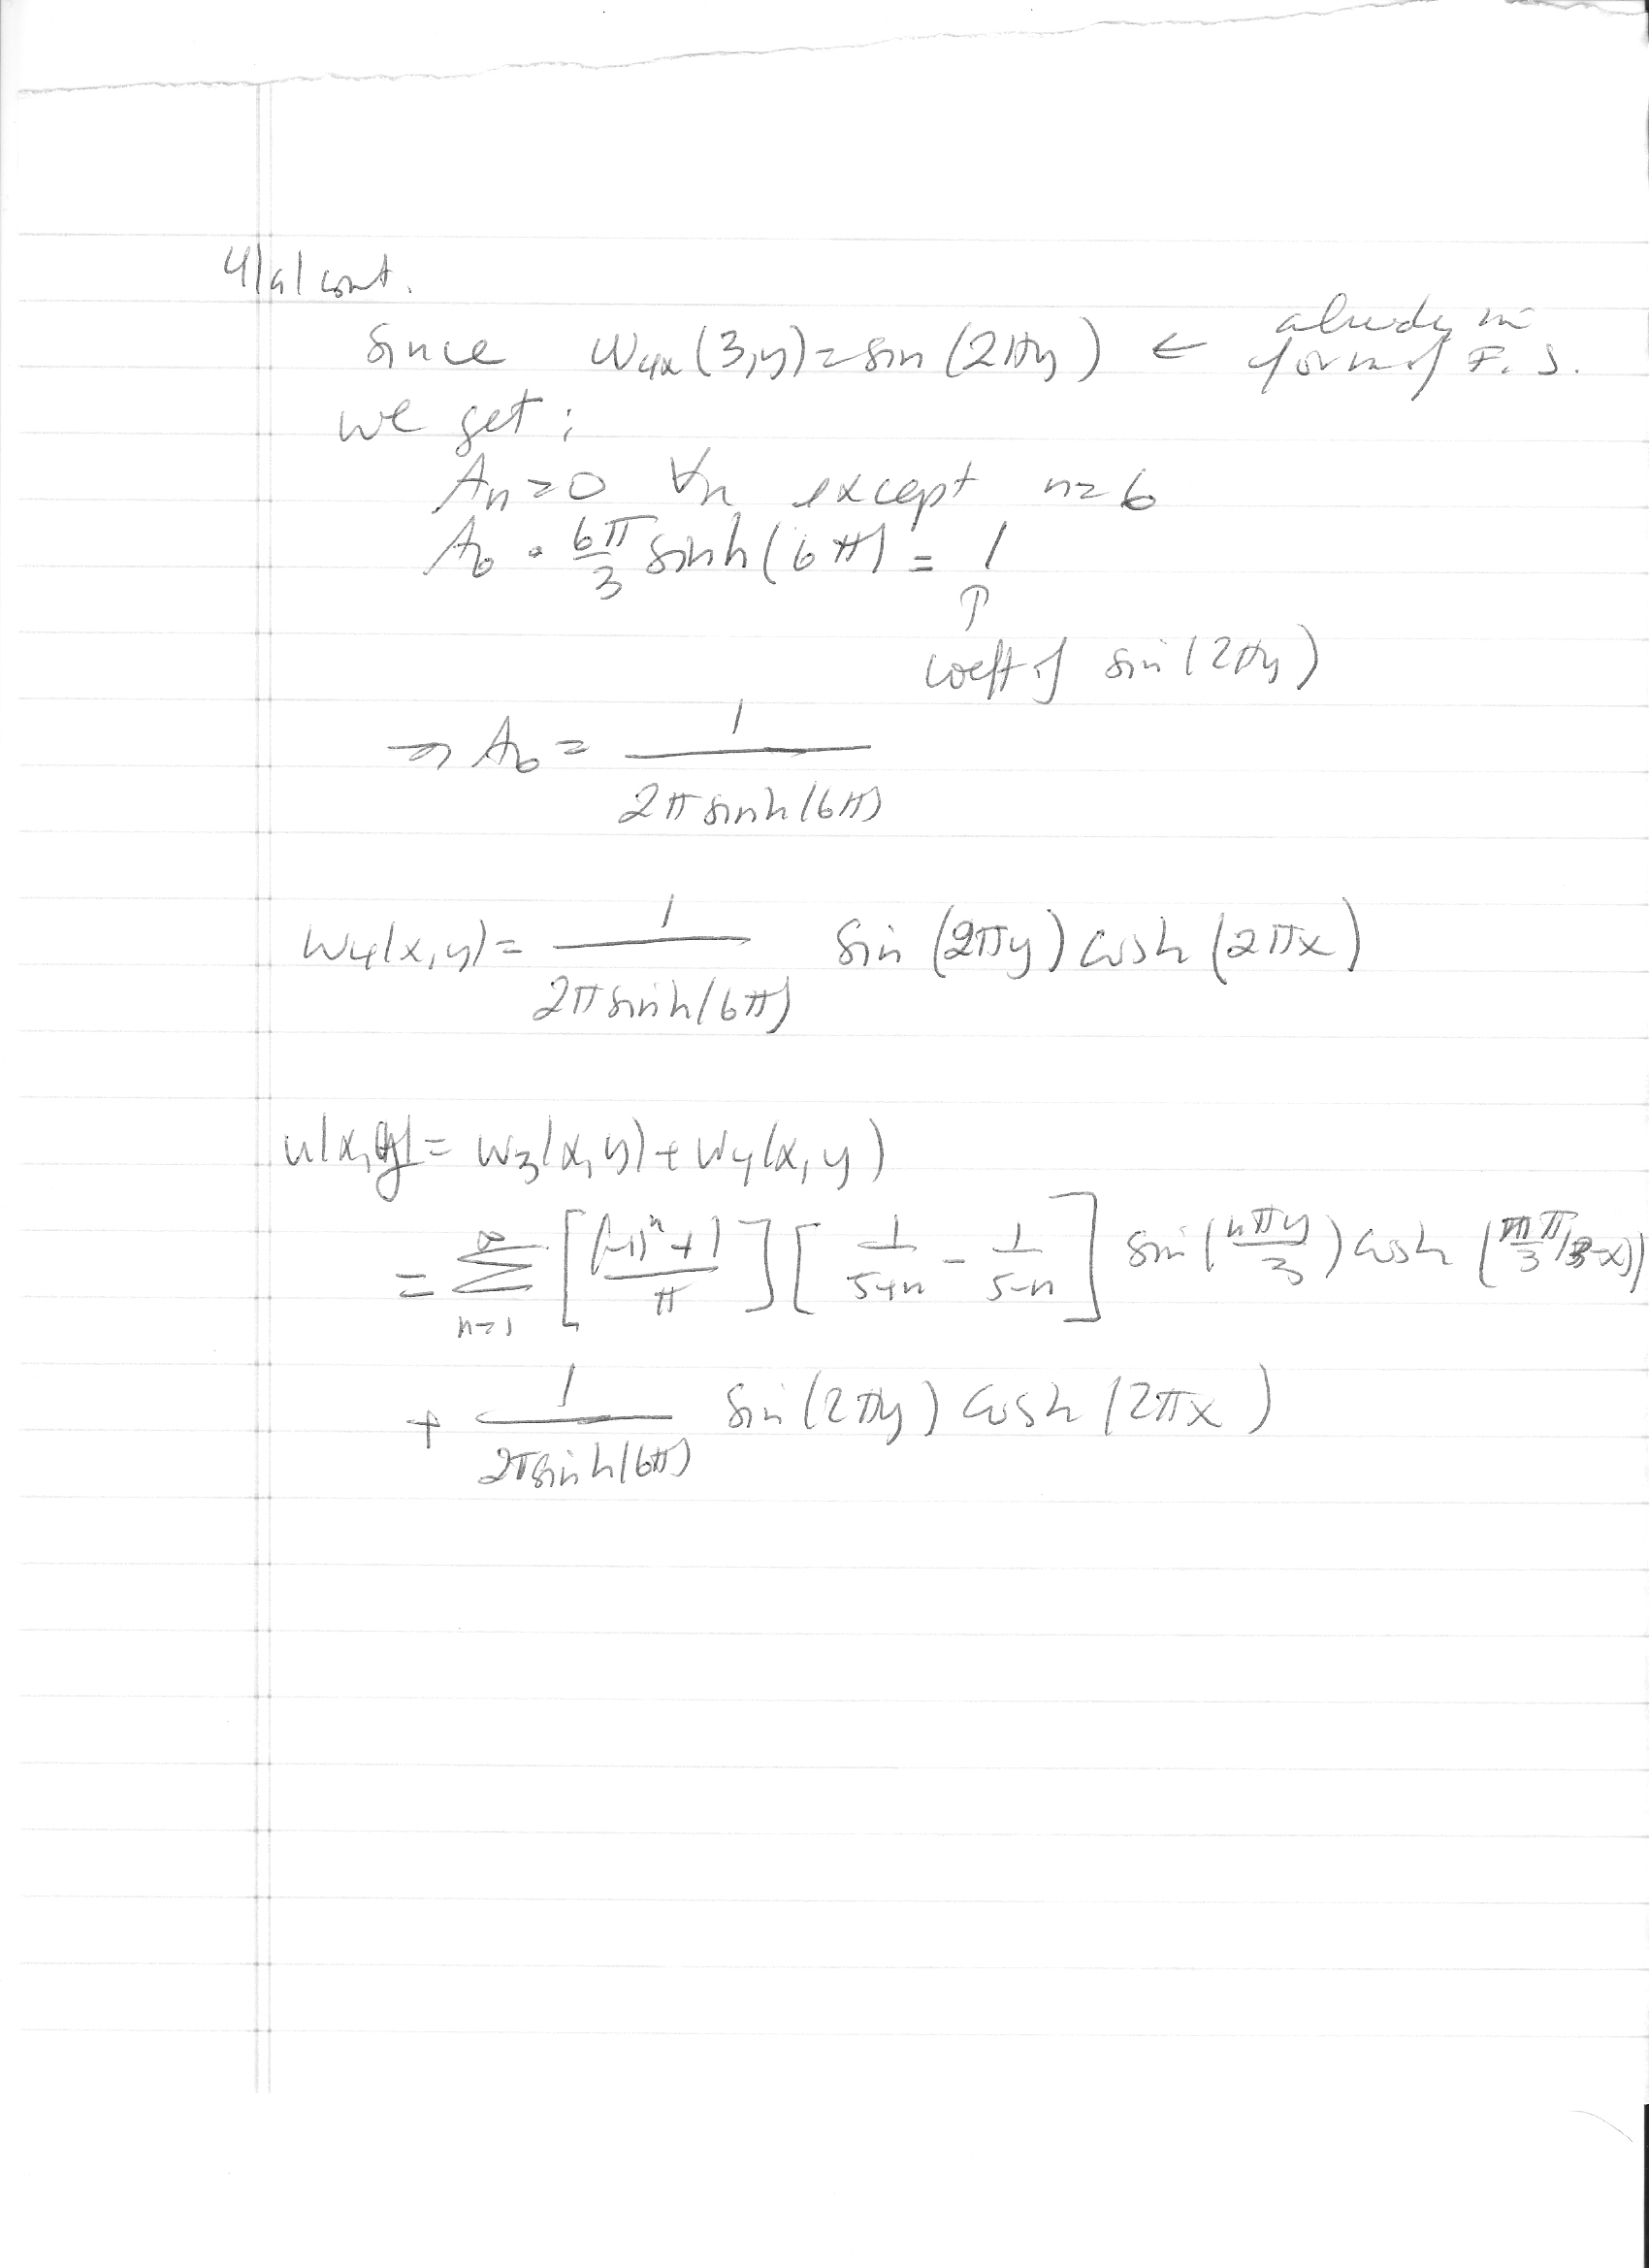 4/a/ cont.
Since W₄ₓ(3,y) = sin(2πy) ← already in form of F.S.
we get:
Aₙ = 0 ∀n except n = 6
A₆ · 6π/3 sinh(6π) = 1
↑
coefft of sin(2πy)
⇒ A₆ = 1/(2π sinh(6π))
W₄(x,y) = 1/(2π sinh(6π)) sin(2πy) cosh(2πx)
u(x,y) = W₃(x,y) + W₄(x,y)
= ∑ₙ₌₁^∞ [((-1)ⁿ+1)/π] [1/(5+n) - 1/(5-n)] sin(nπy/3) cosh(nπ/3(3-x))
+ 1/(2π sinh(6π)) sin(2πy) cosh(2πx)